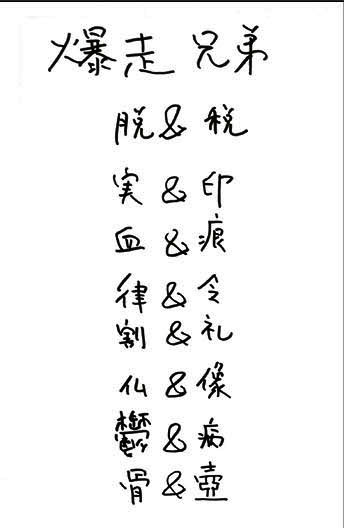 爆走兄弟
脱&税
実&印
血&痕
律&令
割&礼
仏&像
鬱&病
骨&壺